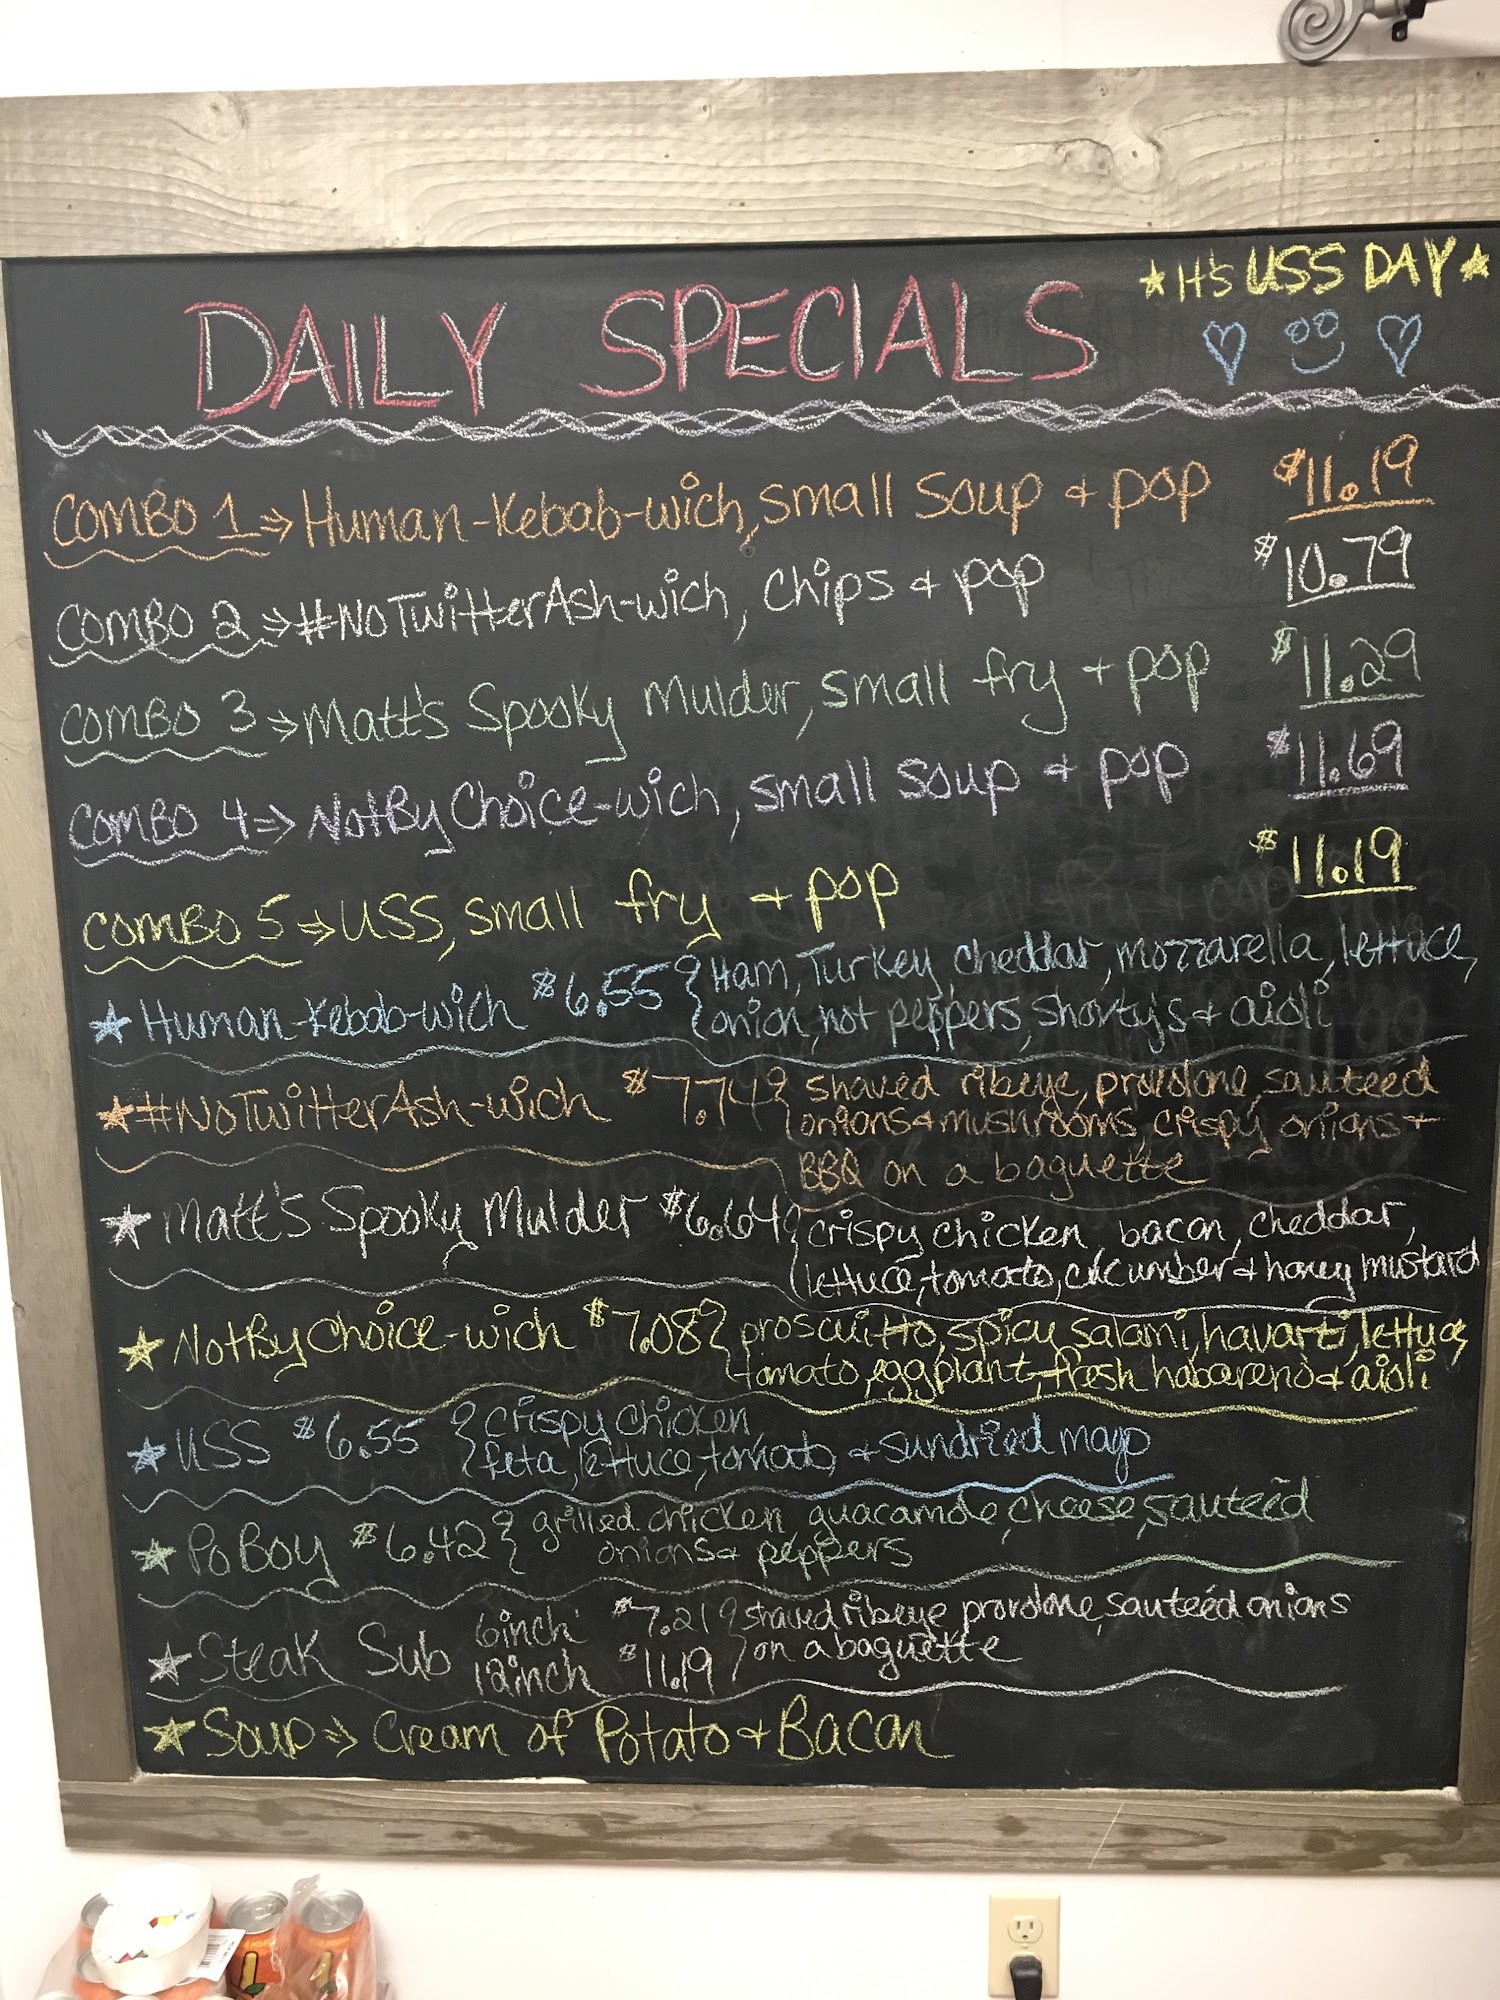 ★ It's USS DAY ★
DAILY SPECIALS
COMBO 1 ⇒ Human-Kebab-wich, small soup + pop $11.19
COMBO 2 ⇒ #NoTwitterAsh-wich, chips + pop $10.79
COMBO 3 ⇒ Matt's Spooky Mulder, small fry + pop $11.29
COMBO 4 ⇒ NotByChoice-wich, small soup + pop $11.69
COMBO 5 ⇒ USS, small fry + pop $11.19
★ Human-Kebab-wich $6.55 { Ham, Turkey, cheddar, mozzarella, lettuce,
onion, hot peppers, shorty's + aioli
★ #NoTwitterAsh-wich $7.74 { shaved ribeye, provolone, sauteed
onions + mushrooms, crispy onions +
BBQ on a baguette
★ Matt's Spooky Mulder $6.64 { crispy chicken bacon, cheddar,
lettuce, tomato, cucumber + honey mustard
★ NotByChoice-wich $7.08 { proscuitto, spicy salami, havarti, lettuce,
tomato, eggplant, fresh habareno + aioli
★ USS $6.55 { crispy chicken,
feta, lettuce, tomato, + sundried mayo
★ Po Boy $6.42 { grilled chicken, guacamole, cheese, sauteed
onions + peppers
★ Steak Sub 6inch $7.21 { shaved ribeye, provolone, sauteed onions
12inch $11.19 on a baguette
★ Soup ⇒ Cream of Potato + Bacon